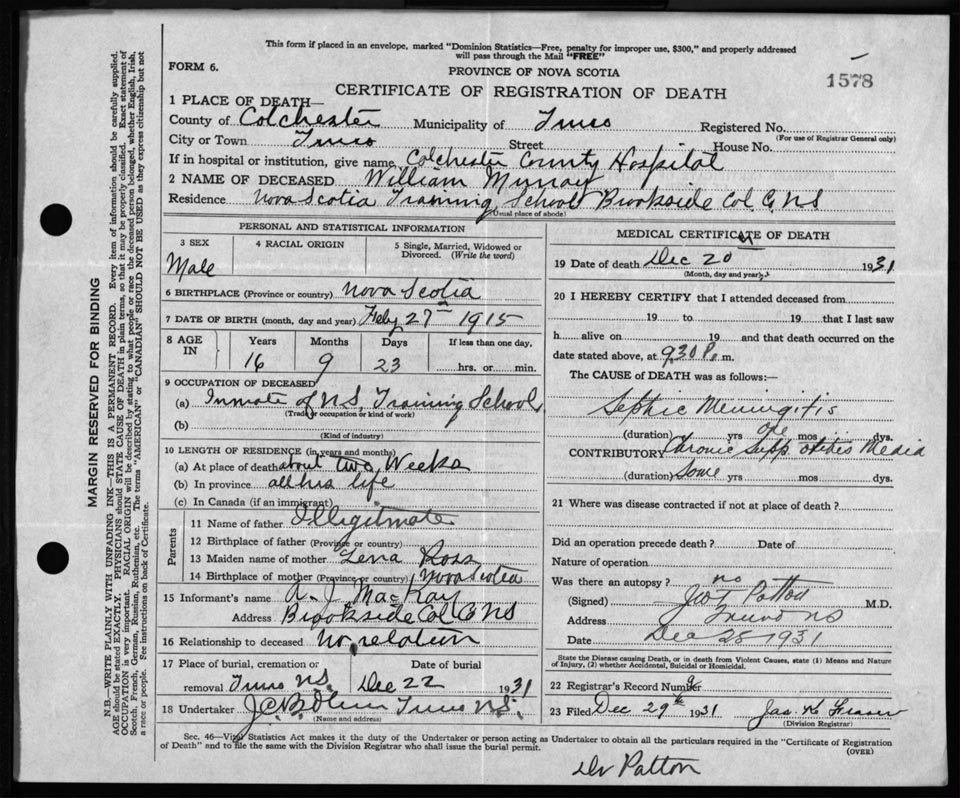 This form if placed in an envelope, marked "Dominion Statistics—Free, penalty for improper use, $300," and properly addressed
will pass through the Mail "FREE"
FORM 6.
PROVINCE OF NOVA SCOTIA
1578
CERTIFICATE OF REGISTRATION OF DEATH
1 PLACE OF DEATH—
County of Colchester Municipality of Truro Registered No.
(For use of Registrar General only)
City or Town Truro Street House No.
If in hospital or institution, give name Colchester County Hospital
2 NAME OF DECEASED William Murray
Residence Nova Scotia Training School Brookside Col. C. NS
(Usual place of abode)
PERSONAL AND STATISTICAL INFORMATION
3 SEX 4 RACIAL ORIGIN 5 Single, Married, Widowed or Divorced. (Write the word)
Male
6 BIRTHPLACE (Province or country) Nova Scotia
7 DATE OF BIRTH (month, day and year) Feby 27th 1915
8 AGE IN Years Months Days If less than one day,
16 9 23 hrs. or min.
9 OCCUPATION OF DECEASED
(a) Inmate of N.S. Training School
(Trade, occupation or kind of work)
(b)
(Kind of industry)
10 LENGTH OF RESIDENCE (in years and months)
(a) At place of death about two Weeks
(b) In province all his life
(c) In Canada (if an immigrant)
Parents
11 Name of father Illegitmate
12 Birthplace of father (Province or country)
13 Maiden name of mother Lena Ross
14 Birthplace of mother (Province or country) Nova Scotia
15 Informant's name A. J. MacKay
Address Brookside Col. C NS
16 Relationship to deceased no relation
17 Place of burial, cremation or removal Truro N.S. Date of burial Dec 22 1931
18 Undertaker Truro N.S.
(Name and address)
MEDICAL CERTIFICATE OF DEATH
19 Date of death Dec 20th 1931
(Month, day and year)
20 I HEREBY CERTIFY that I attended deceased from
19 to 19 that I last saw
h alive on 19 and that death occurred on the
date stated above, at 9.30 P. m.
The CAUSE of DEATH was as follows:
Septic Meningitis
(duration) yrs one mos. dys.
CONTRIBUTORY Chronic Supp. otitis Media
(duration) Some yrs mos dys.
21 Where was disease contracted if not at place of death?
Did an operation precede death? Date of
Nature of operation
Was there an autopsy? no
(Signed) Patton M.D.
Address Truro NS
Date Dec 28 1931
State the Disease causing Death, or in death from Violent Causes, state (1) Means and Nature
of Injury, (2) whether Accidental, Suicidal or Homicidal.
22 Registrar's Record Number
23 Filed Dec 29th 1931 Jas. K Fraser
(Division Registrar)
Sec. 46—Vital Statistics Act makes it the duty of the Undertaker or person acting as Undertaker to obtain all the particulars required in the "Certificate of Registration
of Death" and to file the same with the Division Registrar who shall issue the burial permit.
(OVER)
Dr Patton
MARGIN RESERVED FOR BINDING
N.B.—WRITE PLAINLY WITH UNFADING INK—THIS IS A PERMANENT RECORD. Every item of information should be carefully supplied.
AGE should be stated EXACTLY. PHYSICIANS should STATE CAUSE OF DEATH in plain terms, so that it may be properly classified. Exact statement of
OCCUPATION is very important. RACIAL ORIGIN will be described by stating to what people or race the deceased person belonged, whether English, Irish,
Scotch, French, German, Russian, Ruthenian, etc. The terms "AMERICAN" or "CANADIAN" SHOULD NOT BE USED as they express citizenship but not
a race or people. Fee instructions on back of Certificate.